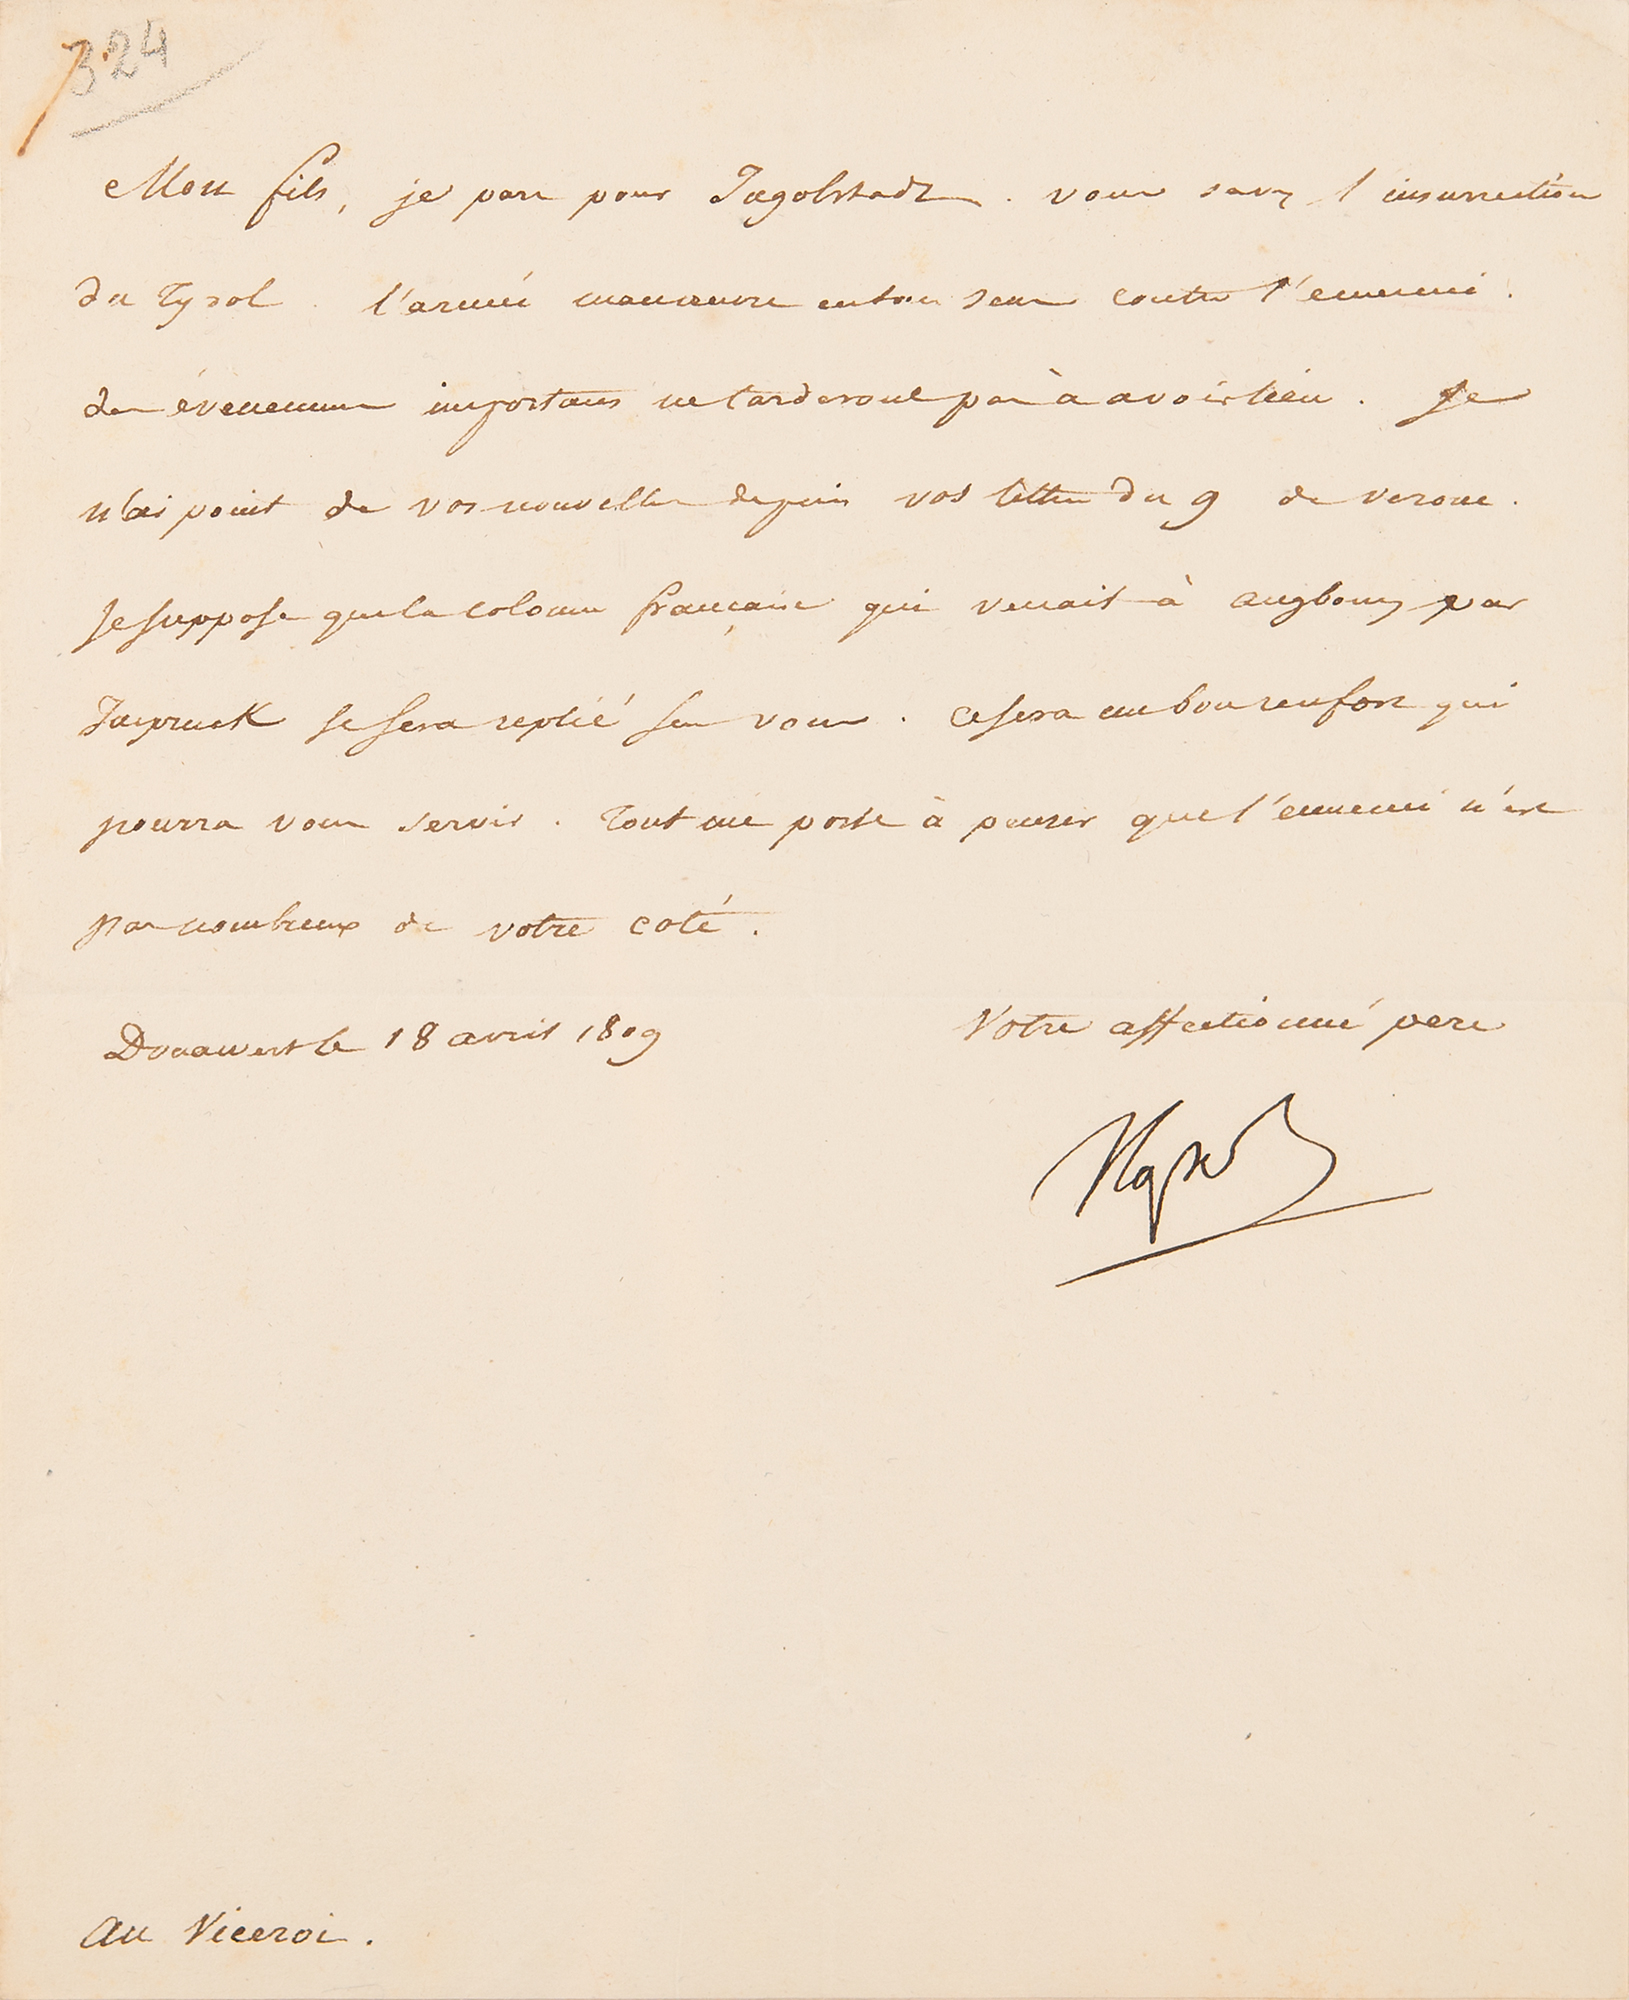 324
Mon fils, je pars pour Ingolstadt. vous savez l'insurrection
du Tyrol. l'armée manœuvre en tous sens contre l'ennemi.
des évenemens importans ne tarderont pas à avoir lieu. Je
n'ai point de vos nouvelles depuis vos lettres du 9 de verone.
Je suppose que la colonne française qui venait à augbourg par
Inspruck se sera replié sur vous. ce sera un bon renfort qui
pourra vous servir. Tout me porte à penser que l'ennemi n'est
pas nombreux de votre coté.
Donawert le 18 avril 1809
Votre affectionné pere
Napol
au Viceroi.